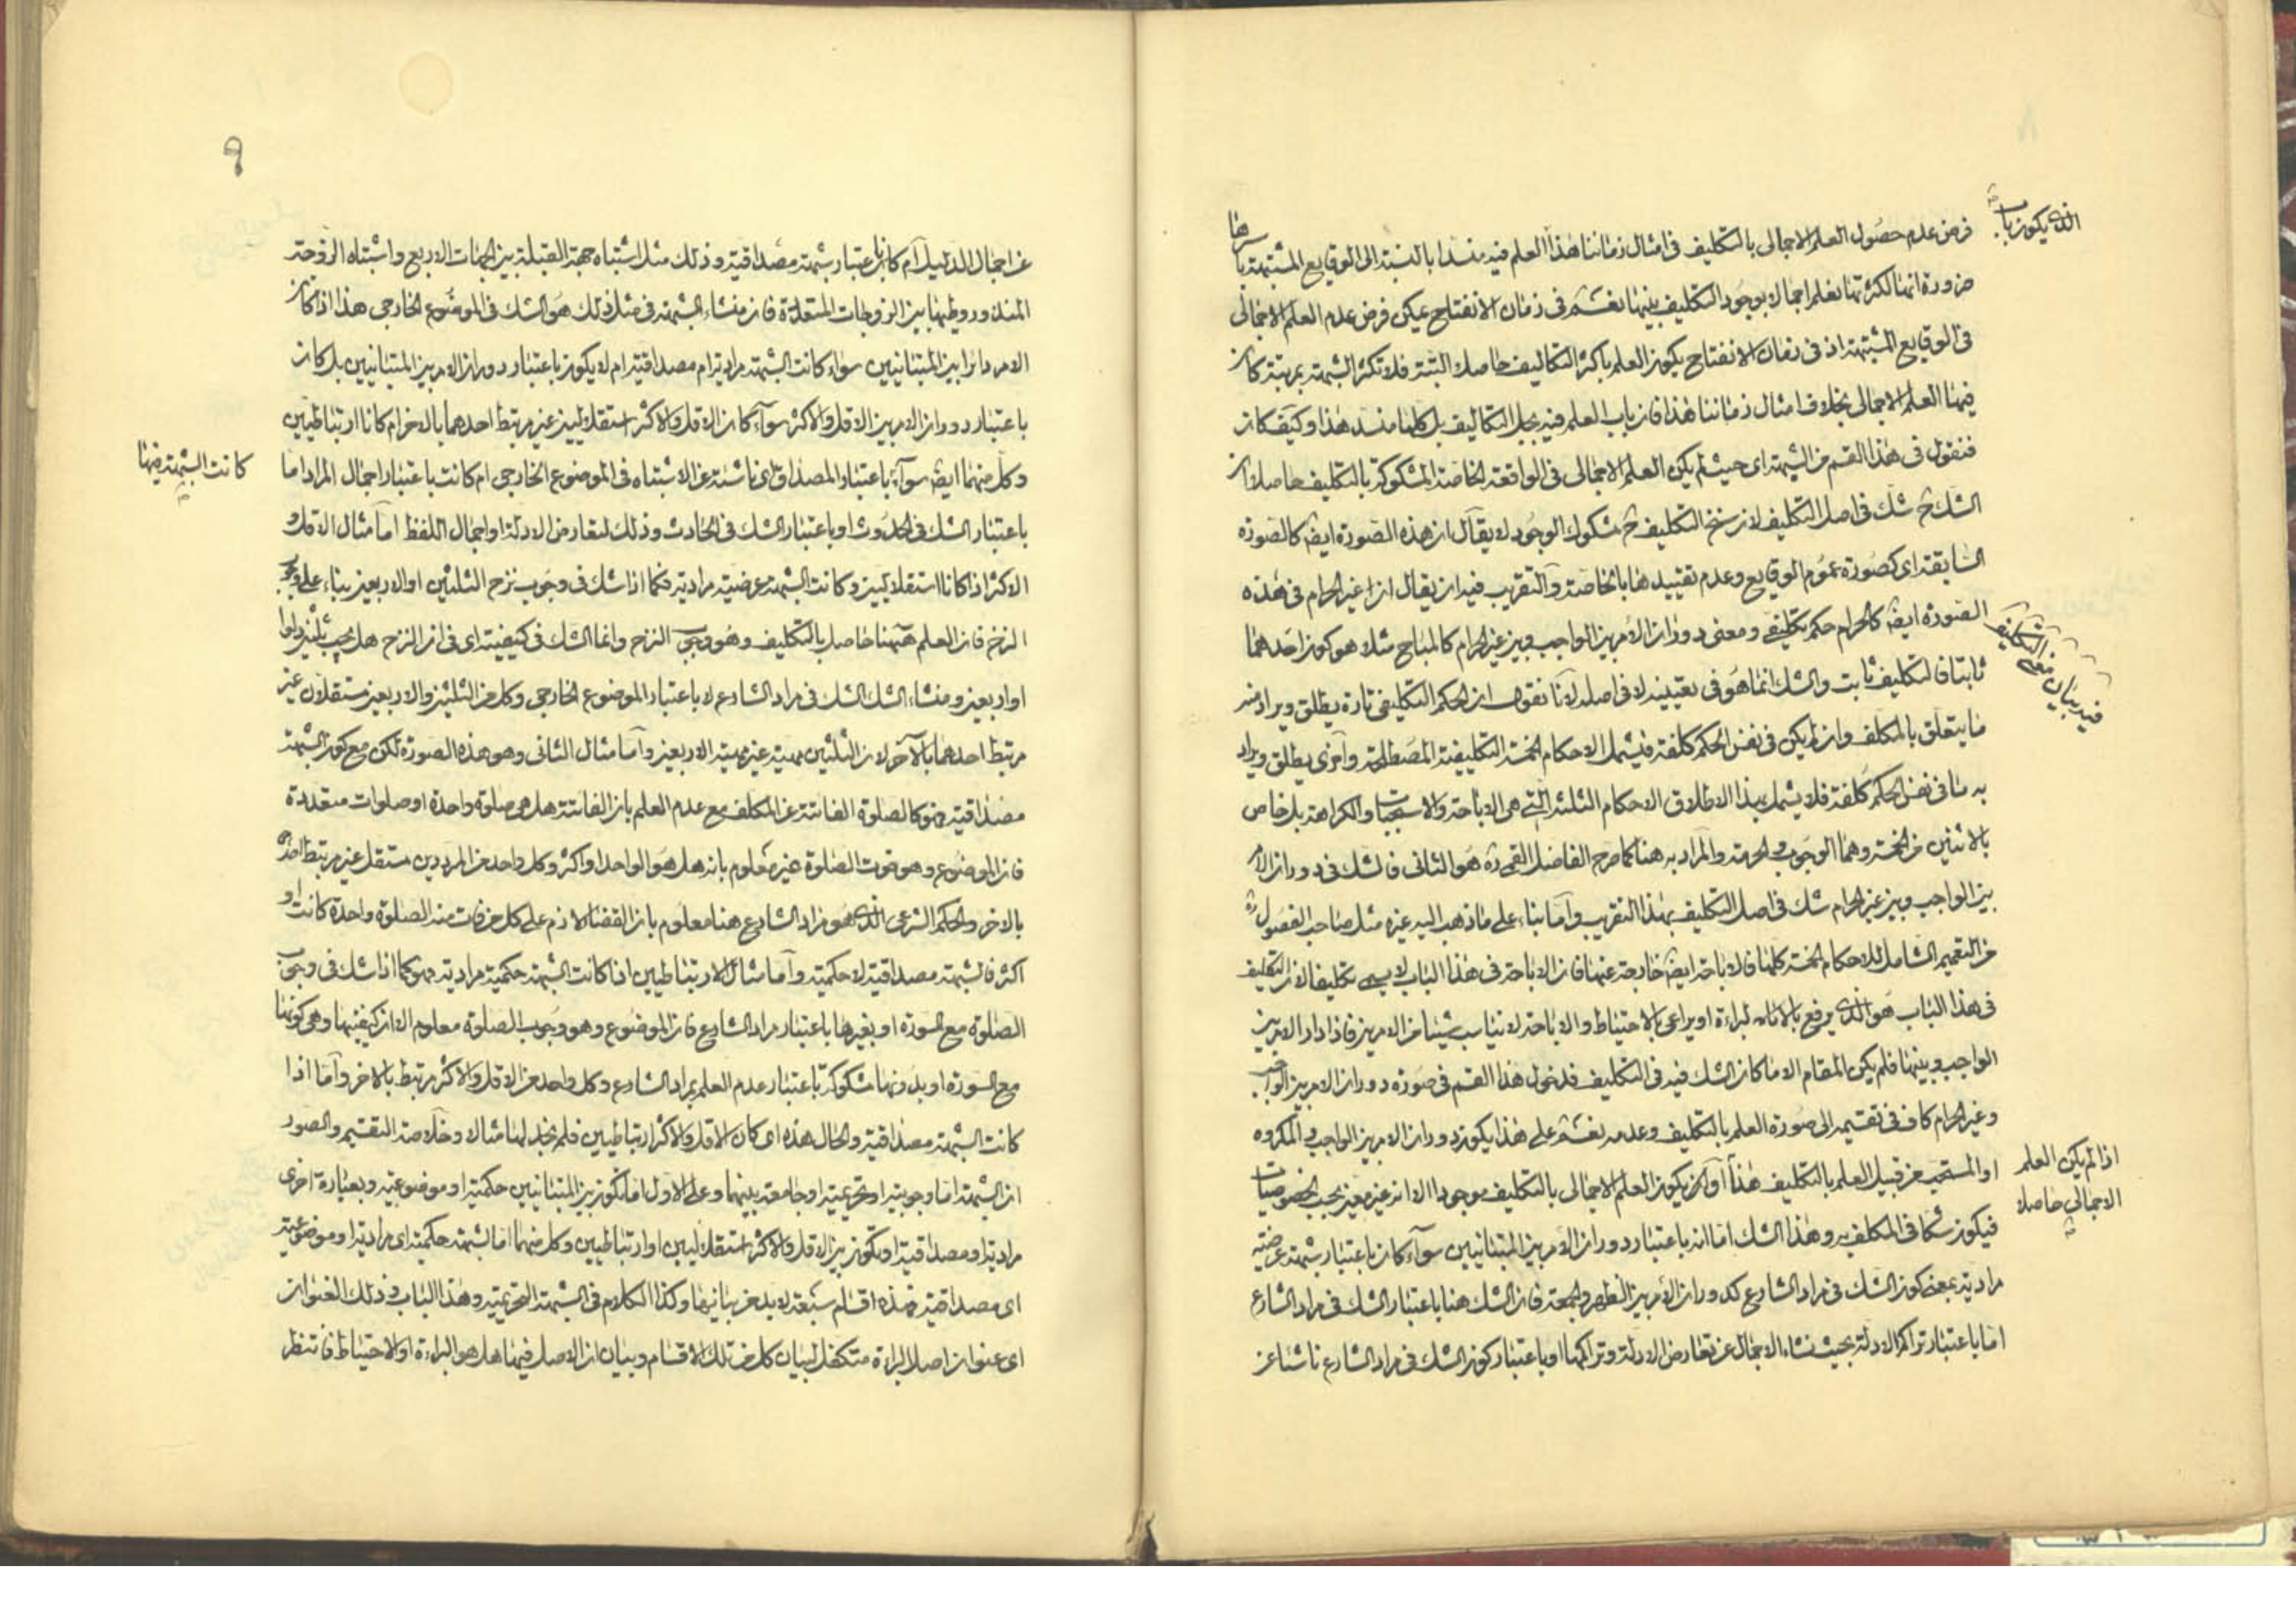 فرض عدم حصول العلم الاجمالى بالتكليف فى امثال زماننا هذا العلم فيه منسدا بالنسبة الى الوقايع المشتبهة باسرها
الذى يكون باب
ضرورة انها لكثرتها نعلم اجمالا بوجود التكليف بينها نعم فى زمان الانفتاح يمكن فرض عدم العلم الاجمالى
فى الوقايع المشتبهة اذ فى زمان الانفتاح يكون العلم باكثر التكاليف حاصلا البتة فلا تكثر الشبهة بمرتبة كان
فيها العلم الاجمالى بخلاف امثال زماننا هذا فان باب العلم فيه بجل التكاليف بل كلها منسد هذا وكيف كان
فنقول فى هذا القسم من الشبهة اى حيث لم يكن العلم الاجمالى فى الواقعة الخاصة المشكوكة بالتكليف حاصلا ان
الشك ح شك فى اصل التكليف لان سنخ التكليف ح مشكوك الوجود لا يقال ان هذه الصورة ايضا كالصورة
السابقة اى كصورة عموم الوقايع وعدم تقييدها بالخاصة والتقريب فيه ان يقال ان غير الحرام فى هذه
الصورة ايضا كالحرام حكم تكليفى ومعنى دوران الامر بين الواجب وبين غير الحرام كالمباح مثلا هو كون احدهما
ثابتا فالتكليف ثابت والشك انما هو فى تعيينه لا فى اصله لانا نقول ان الحكم التكليفى تارة يطلق ويراد منه
فيه بيان معنى التكليف
ما يتعلق بالمكلف وان لم يكن فى نفس الحكم كلفة فيشمل الاحكام الخمسة التكليفية المصطلحة واخرى يطلق ويراد
به ما فى نفس الحكم كلفة فلا يشمل بهذا الاطلاق الاحكام الثلثة التى هى الاباحة والاستحباب والكراهة بل خاص
بالاثنين من الخمسة وهما الوجوب والحرمة والمراد به هنا كما صرح الفاضل القمى ره هو الثانى فالشك فى دوران الامر
بين الواجب وبين غير الحرام شك فى اصل التكليف بهذا التقريب واما بناء على ما ذهب اليه غيره مثل صاحب الفصول ره
من التعميم الشامل للاحكام الخمسة كلها فالاباحة ايضا خارجة عنها فان الاباحة فى هذا الباب لا يسمى تكليفا لان التكليف
فى هذا الباب هو الذى يرفع بالاصالة البراءة او يراعى بالاحتياط والاباحة لا تناسب شيئا من الامرين فاذا دار الامر بين
الواجب وبينها فلم يكن المقام الا ما كان الشك فيه فى التكليف فدخول هذا القسم فى صورة دوران الامر بين الواجب
وغير الحرام كاف فى تقسيمه الى صورة العلم بالتكليف وعدمه نعم على هذا يكون دوران الامر بين الواجب والمكروه
او المستحب من قبيل العلم بالتكليف هذا اذا لم يكن العلم الاجمالى حاصلا او ان يكون العلم الاجمالى بالتكليف موجودا الا انه غير معين بحسب الخصوصيات
فيكون شكا فى المكلف به وهذا الشك اما انه باعتبار دوران الامر بين المتبائنين سواء كان باعتبار شبهة عرضية
مرادية بمعنى كون الشك فى مراد الشارع كدوران الامر بين الظهر والجمعة فان الشك هنا باعتبار الشك فى مراد الشارع
اما باعتبار تراكم الادلة بحيث نشاء الاجمال عن تعارض الادلة وتراكمها او باعتبار كون الشك فى مراد الشارع ناشئا عن
٩
عن اجمال الدليل ام كان باعتبار شبهة مصداقية وذلك مثل اشتباه جهة القبلة بين الجهات الاربع واشتباه الزوجة
المنذور وطيها بين الزوجات المتعددة فان منشاء الشبهة فى مثل ذلك هو الشك فى الموضوع الخارجى هذا اذا كان
الامر دائرا بين المتبائنين سواء كانت الشبهة مرادية ام مصداقية ام لا يكون باعتبار دوران الامر بين المتبائنين بل كان
باعتبار دوران الامر بين الاقل والاكثر سواء كان الاقل والاكثر استقلاليين غير مرتبط احدهما بالاخر ام كانا ارتباطيين
وكل منهما ايضا سواء كانت الشبهة فيها باعتبار المصداق اى ناشئة عن الاشتباه فى الموضوع الخارجى ام كانت باعتبار اجمال المراد اما
باعتبار الشك فى الحدوث او باعتبار الشك فى الحادث وذلك لتعارض الادلة او اجمال اللفظ اما مثال الاقل و
الاكثر اذا كانا استقلاليين وكانت الشبهة عرضية مرادية فكما اذا شك فى وجوب نزح الثلثين او الاربعين بناء على وجوب
النزح فان العلم ههنا حاصل بالتكليف وهو وجوب النزح وانما الشك فى كيفيته اى فى ان النزح هل يجب ثلثين دلوا
او اربعين ومنشاء الشك الشك فى مراد الشارع لا باعتبار الموضوع الخارجى وكل من الثلثين والاربعين مستقلان غير
مرتبط احدهما بالآخر لان الثلثين مهية غير مهية الاربعين واما مثال الثانى وهو هذه الصورة لكن مع كون الشبهة
مصداقية فهو كالصلوة الفائتة عن المكلف مع عدم العلم بان الفائتة هل هى صلوة واحدة او صلوات متعددة
فان الموضوع وهو فوت الصلوة غير معلوم بانه هل هو الواحد او اكثر وكل واحد من المرددين مستقل غير مرتبط احدها
بالاخر والحكم الشرعى الذى هو مراد الشارع هنا معلوم بان القضاء لازم على كل من فات منه الصلوة واحدة كانت او
اكثر فالشبهة مصداقية لا حكمية واما مثال الارتباطيين اذا كانت الشبهة حكمية مرادية فهو كما اذا شك فى وجوب
الصلوة مع السورة او بغيرها باعتبار مراد الشارع فان الموضوع وهو وجوب الصلوة معلوم الا ان كيفيتها وهى كونها
مع السورة او بدونها مشكوكة باعتبار عدم العلم بمراد الشارع وكل واحد من الاقل والاكثر مرتبط بالاخر واما اذا
كانت الشبهة مصداقية والحال هذه اى كان الاقل والاكثر ارتباطيين فلم نجد لها مثالا وخلاصة التقسيم والصور
ان الشبهة اما وجوبية او تحريمية او جامعة بينهما وعلى الاول اما تكون بين المتبائنين حكمية او موضوعية وبعبارة اخرى
مرادية او مصداقية او تكون بين الاقل والاكثر استقلاليين او ارتباطيين وكل منهما اما الشبهة حكمية اى مرادية او موضوعية
اى مصداقية فهذه اقسام سبعة لا بد من بيانها وكذا الكلام فى الشبهة التحريمية وهذا الباب وذلك العنوان
اى عنوان اصل البراءة متكفل لبيان كل من تلك الاقسام وبيان ان الاصل فيها هل هو البراءة او الاحتياط فانتظر